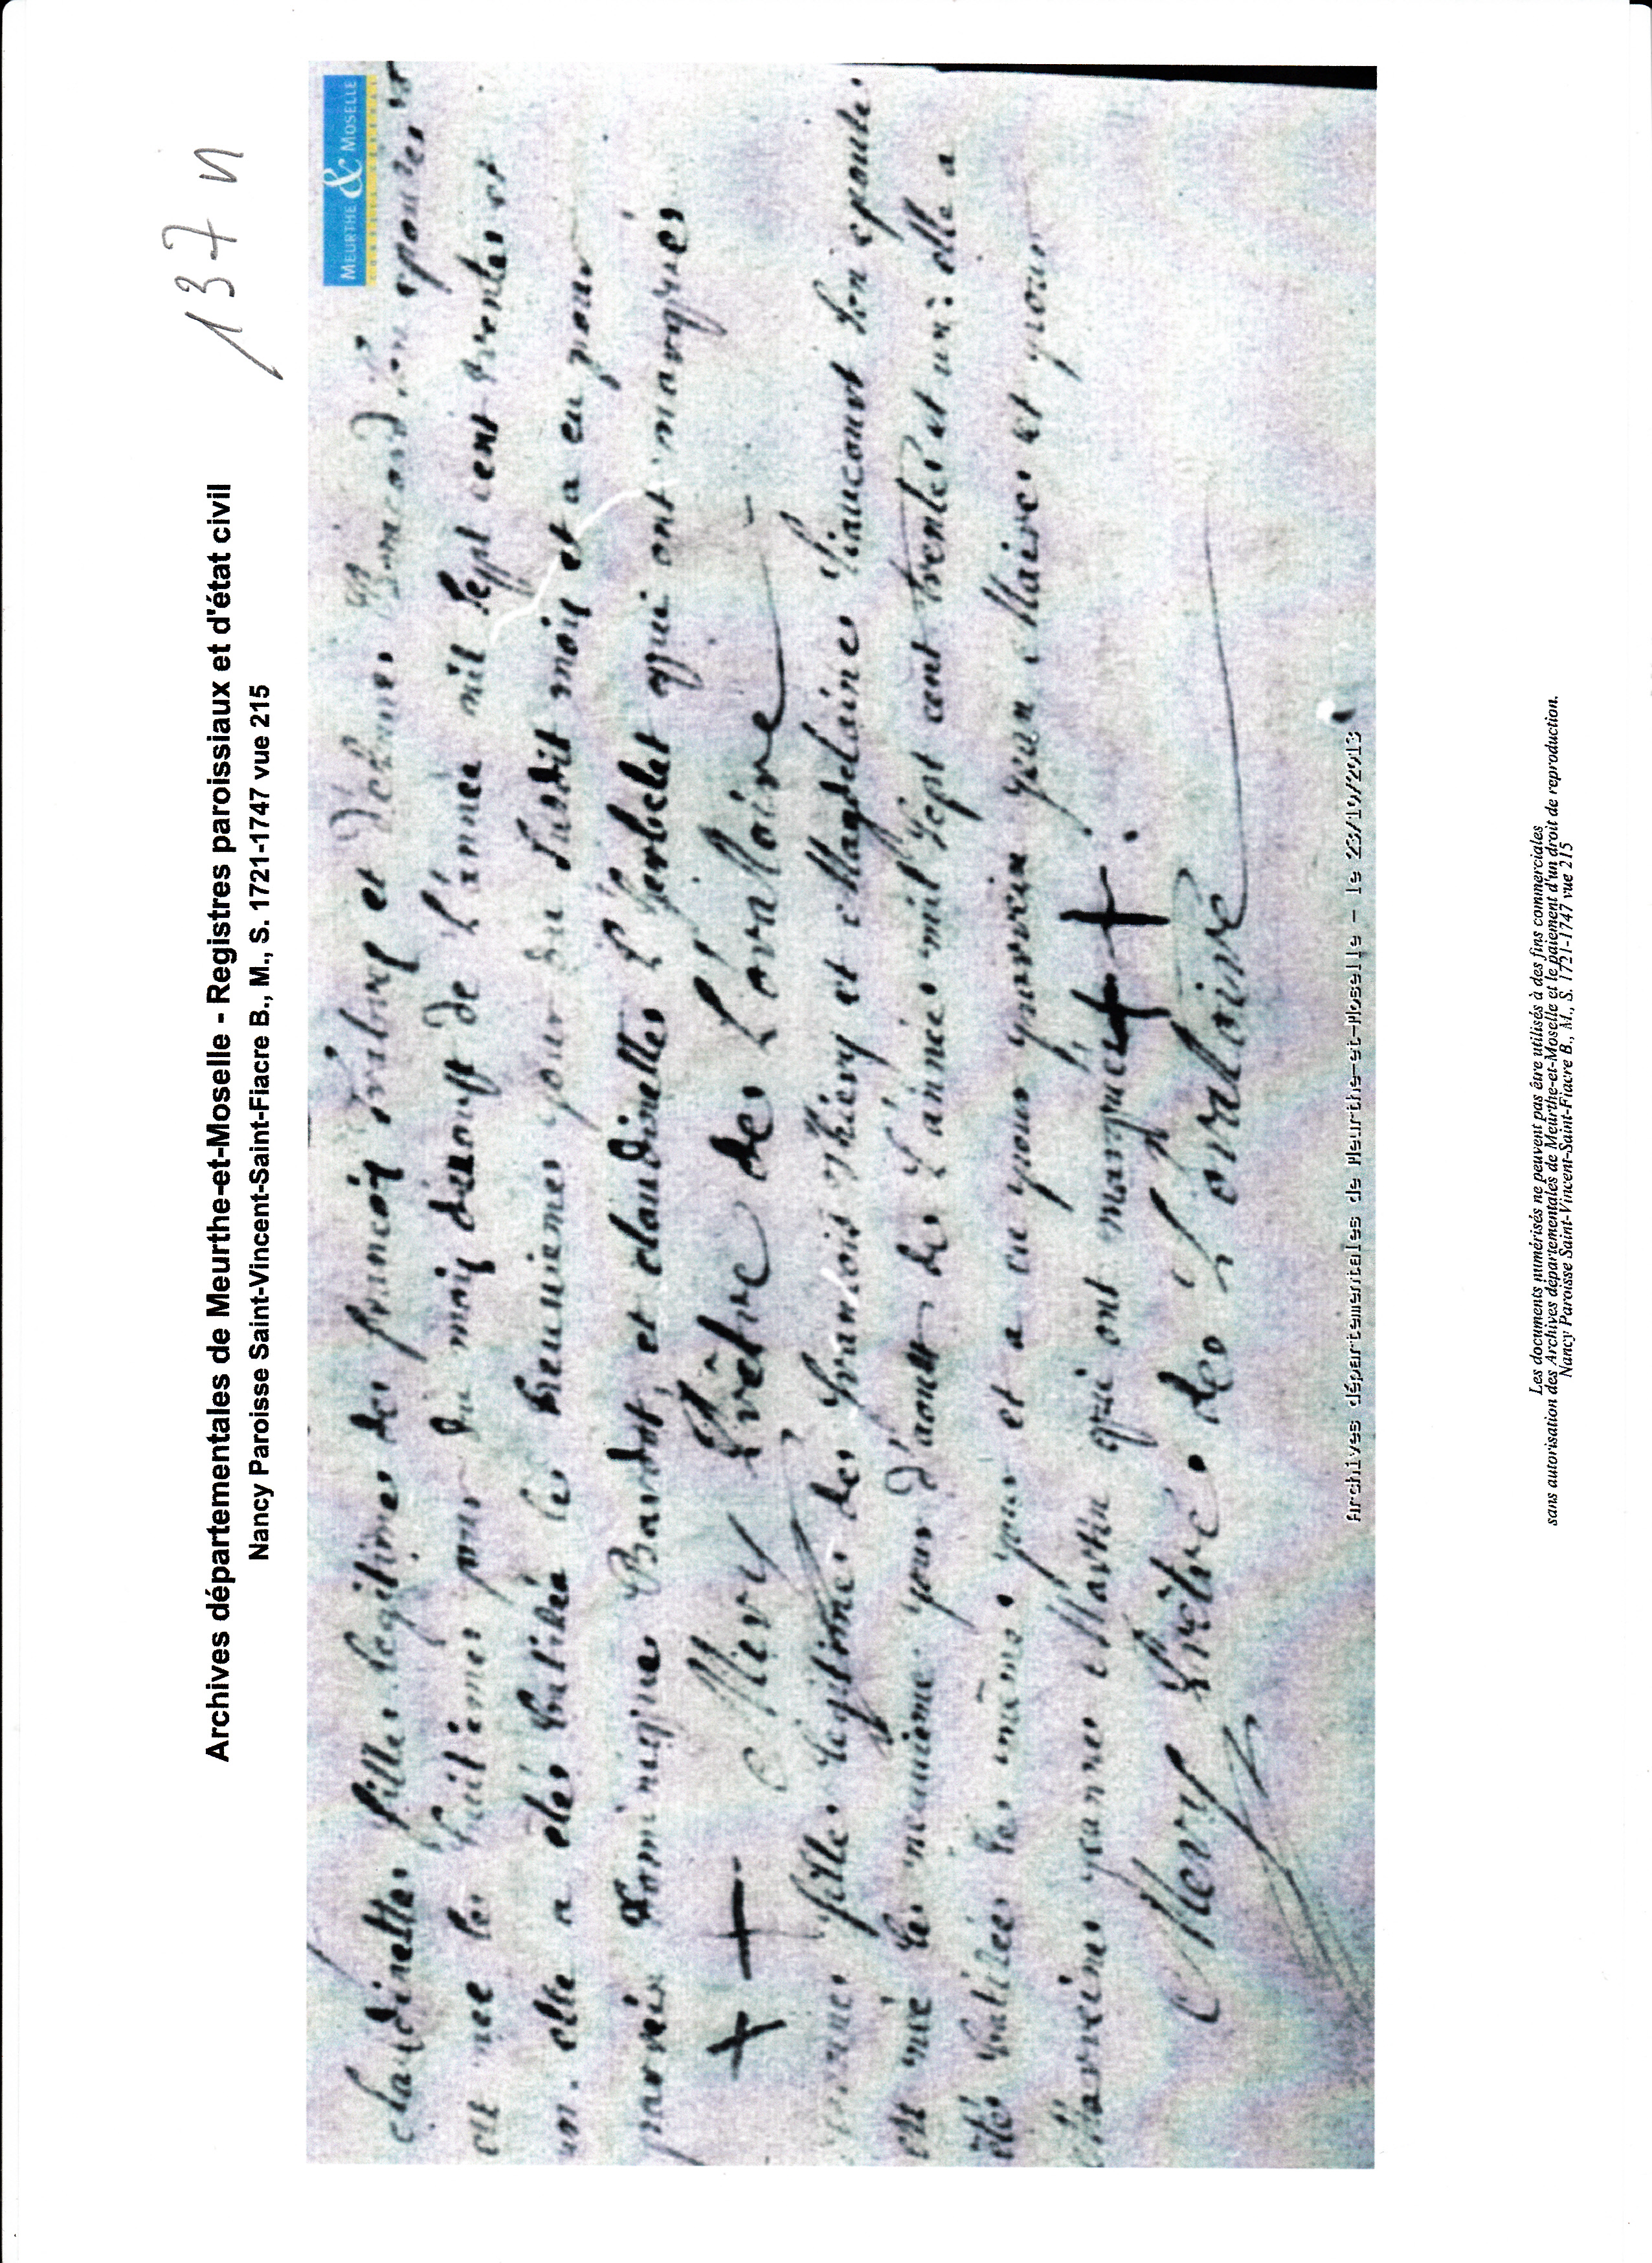 137 N
Archives départementales de Meurthe-et-Moselle - Registres paroissiaux et d'état civil
Nancy Paroisse Saint-Vincent-Saint-Fiacre B., M., S. 1721-1747 vue 215
MEURTHE & MOSELLE
CONSEIL GENERAL
claudinette fille legitime de francois et son epouse
est nee le huitieme jour du mois de l'année mil sept cent trente et
un. elle a eté batisée le neuvieme jour du susdit mois et a eu pour
parein Dominique Bardot, et claudinette qui ont marqués
+ + Mery Prêtre de L'oratoire
fille legitime de francois Thiery et Magdelaine son epouse
est née le neuvieme jour d'aoust de L'année mil sept cent trente et un: elle a
été batisée le même jour et a eu pour parein jean Maire et pour
Mareine jeanne Martin qui ont marqué + +
Mery Prêtre de L'oratoire
Archives départementales de Meurthe-et-Moselle - le
Les documents numérisés ne peuvent pas être utilisés à des fins commerciales
sans autorisation des Archives départementales de Meurthe-et-Moselle et le paiement d'un droit de reproduction.
Nancy Paroisse Saint-Vincent-Saint-Fiacre B., M., S. 1721-1747 vue 215